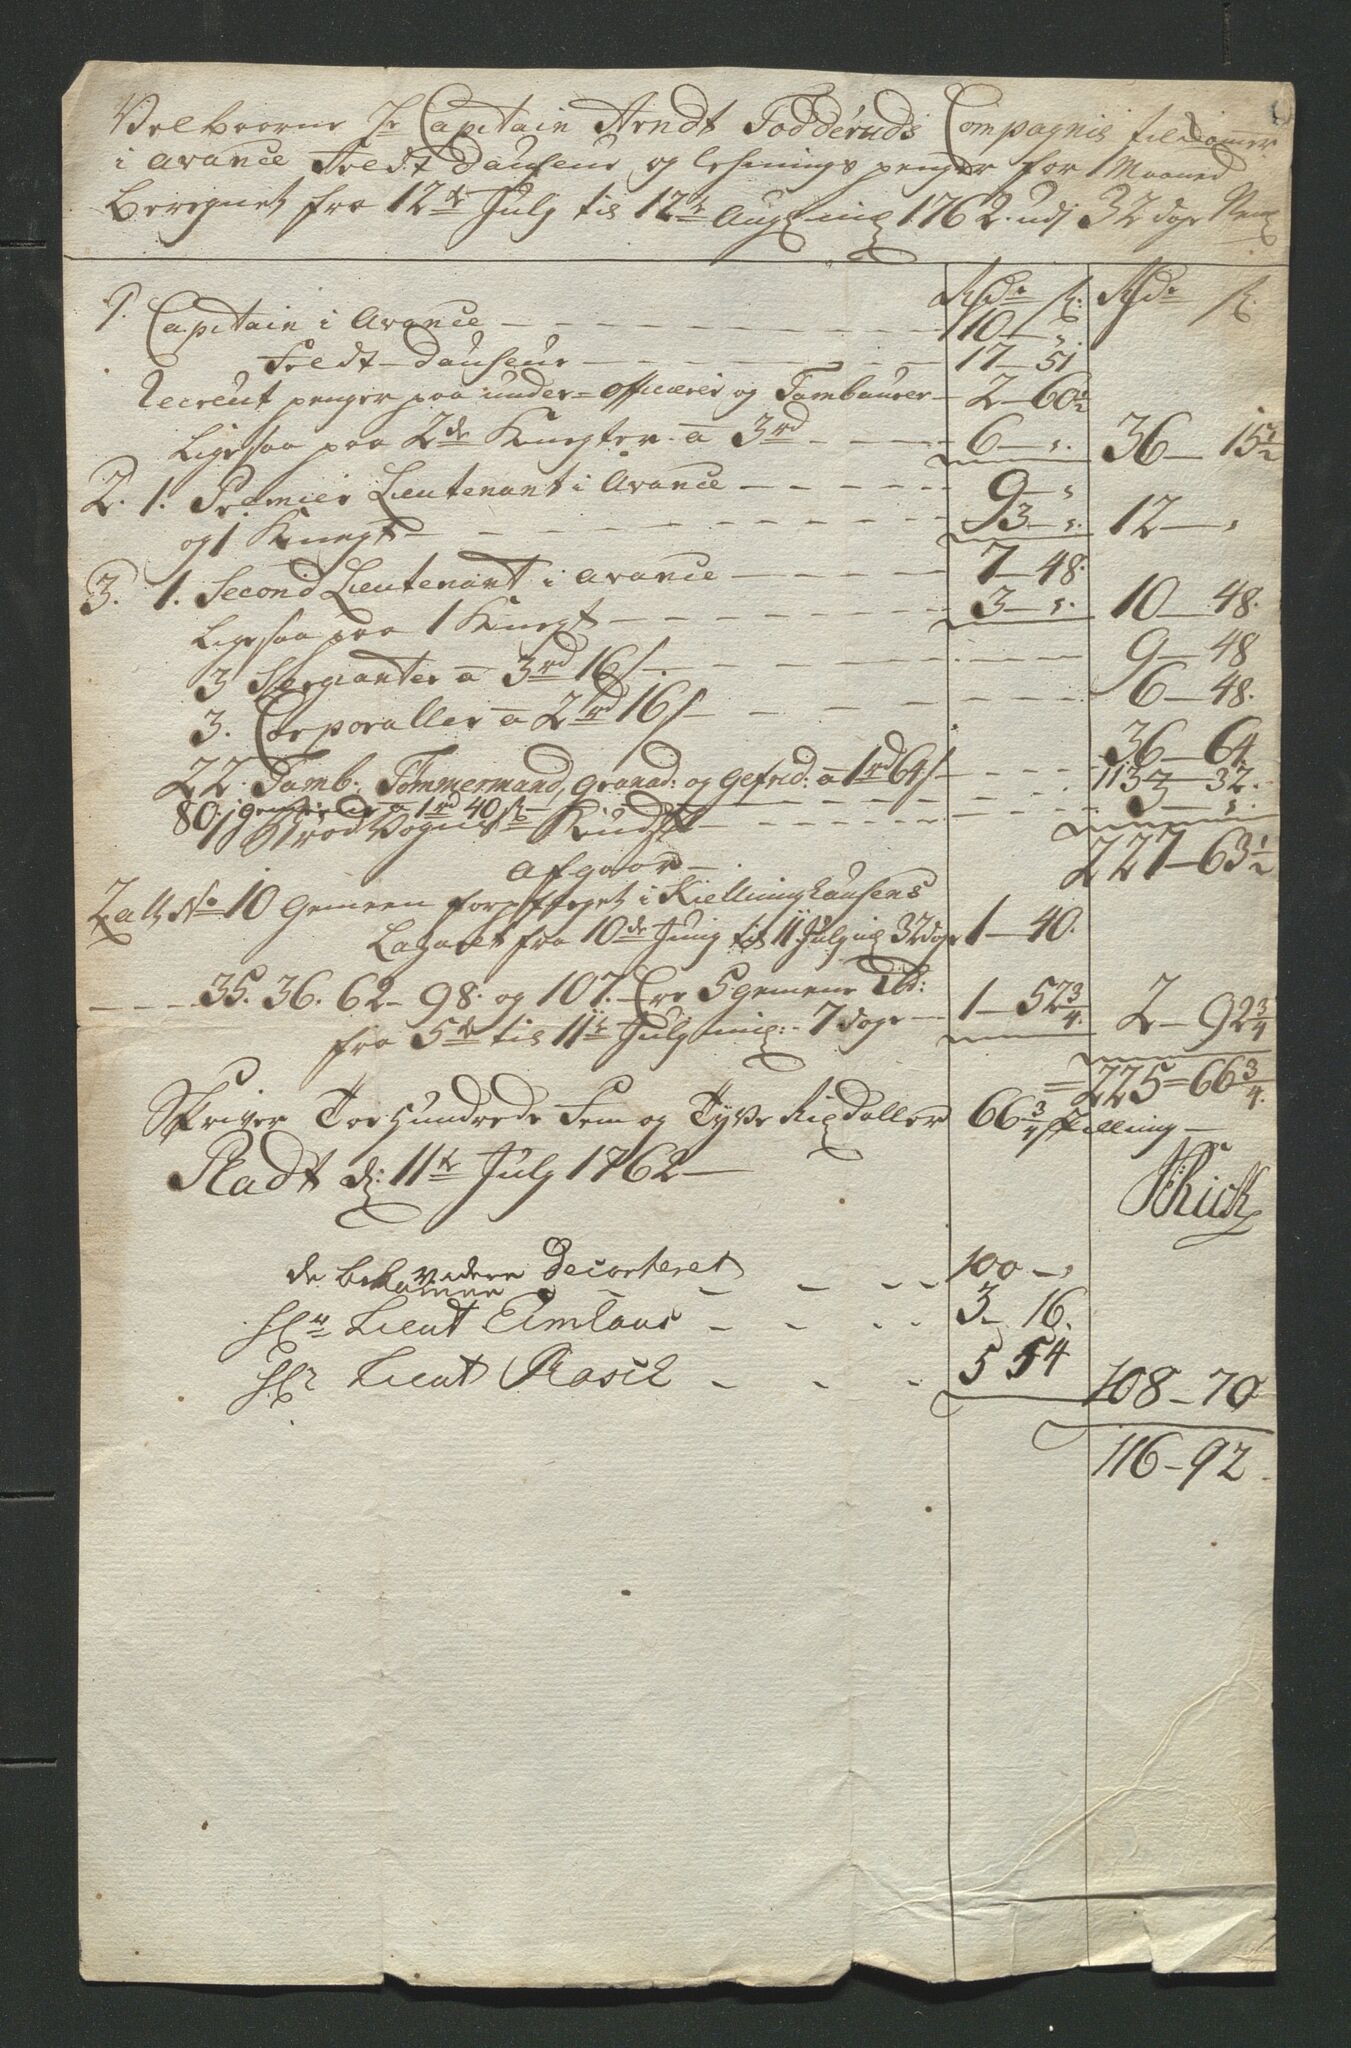 Velbaarne Hr Capitain Arndt Fødderuds Compagnie tilkommer
i avance Feldt Dauseur og Lehnings penger for 1 Maaned
Beregnet fra 12te July til 12te Aug: inc: 1762. udj 32 dage
Rdr ß: Rdr ß
1. Capitain i Avance 10 — „
Feldt-Dauseur 17 — 51
Recreut penger paa under-officerer og Tambaurer 2 — 60½
Ligesaa paa 2de Knegter a 3rd 6 — „ 36 — 15½
2. 1. Premier Lieutenant i Avance 9 — „
og 1 Knegt 3 — „ 12 — „
3. 1. Second Lieutenant i avance 7 — 48.
Ligesaa paa 1 Knegt 3 — „ 10 — 48.
3 Sergianter a 3rd 16ß 9 — 48
3. Corporaller a 2rd 16ß 6 — 48.
22. Tamb: Tømmermænd, granad: og gefrid: a 1rd 64ß 36 — 64
80. gemeene a 1rd 40ß 113 — 32.
1 Brød Vogns Kudsk 3 — „
227 — 63½
afgaar
No 10 gemeen forpfleget i Kiellinghausens
Lazaret fra 10de Juny til 11 July inc 32 dage 1 — 40.
35. 36. 62 — 98. og 107. Ere 5 gemene
fra 5te til 11te July inc: 7 dage 1 — 52¾ 2 — 92¾
= 225 = 66¾
Skriver Toehundrede Fem og Tyve Rixdaller 66¾ skilling —
Stadt d: 11te July 1762 —
de decorteret 100 — „
Hr Lieut 3 — 16.
Hr Lieut Rasch 5 54
108 — 70
116 — 92